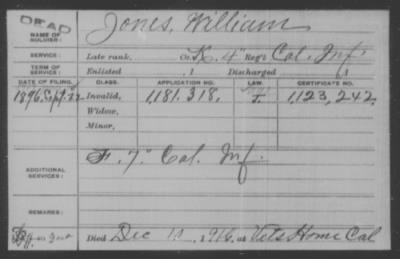 DEAD
Jones, William
NAME OF SOLDIER:
SERVICE: Late rank, Co. K, 4" Reg't Cal. Inf.
TERM OF SERVICE: Enlisted , 1 Discharged , 1
DATE OF FILING. CLASS. APPLICATION NO. LAW. CERTIFICATE NO.
1896, Invalid, 1,181,318, 1,123,242,
Widow,
Minor,
ADDITIONAL SERVICES: F. 7" Cal. Inf.
REMARKS:
Died Dec 1916, at Vets Home Cal